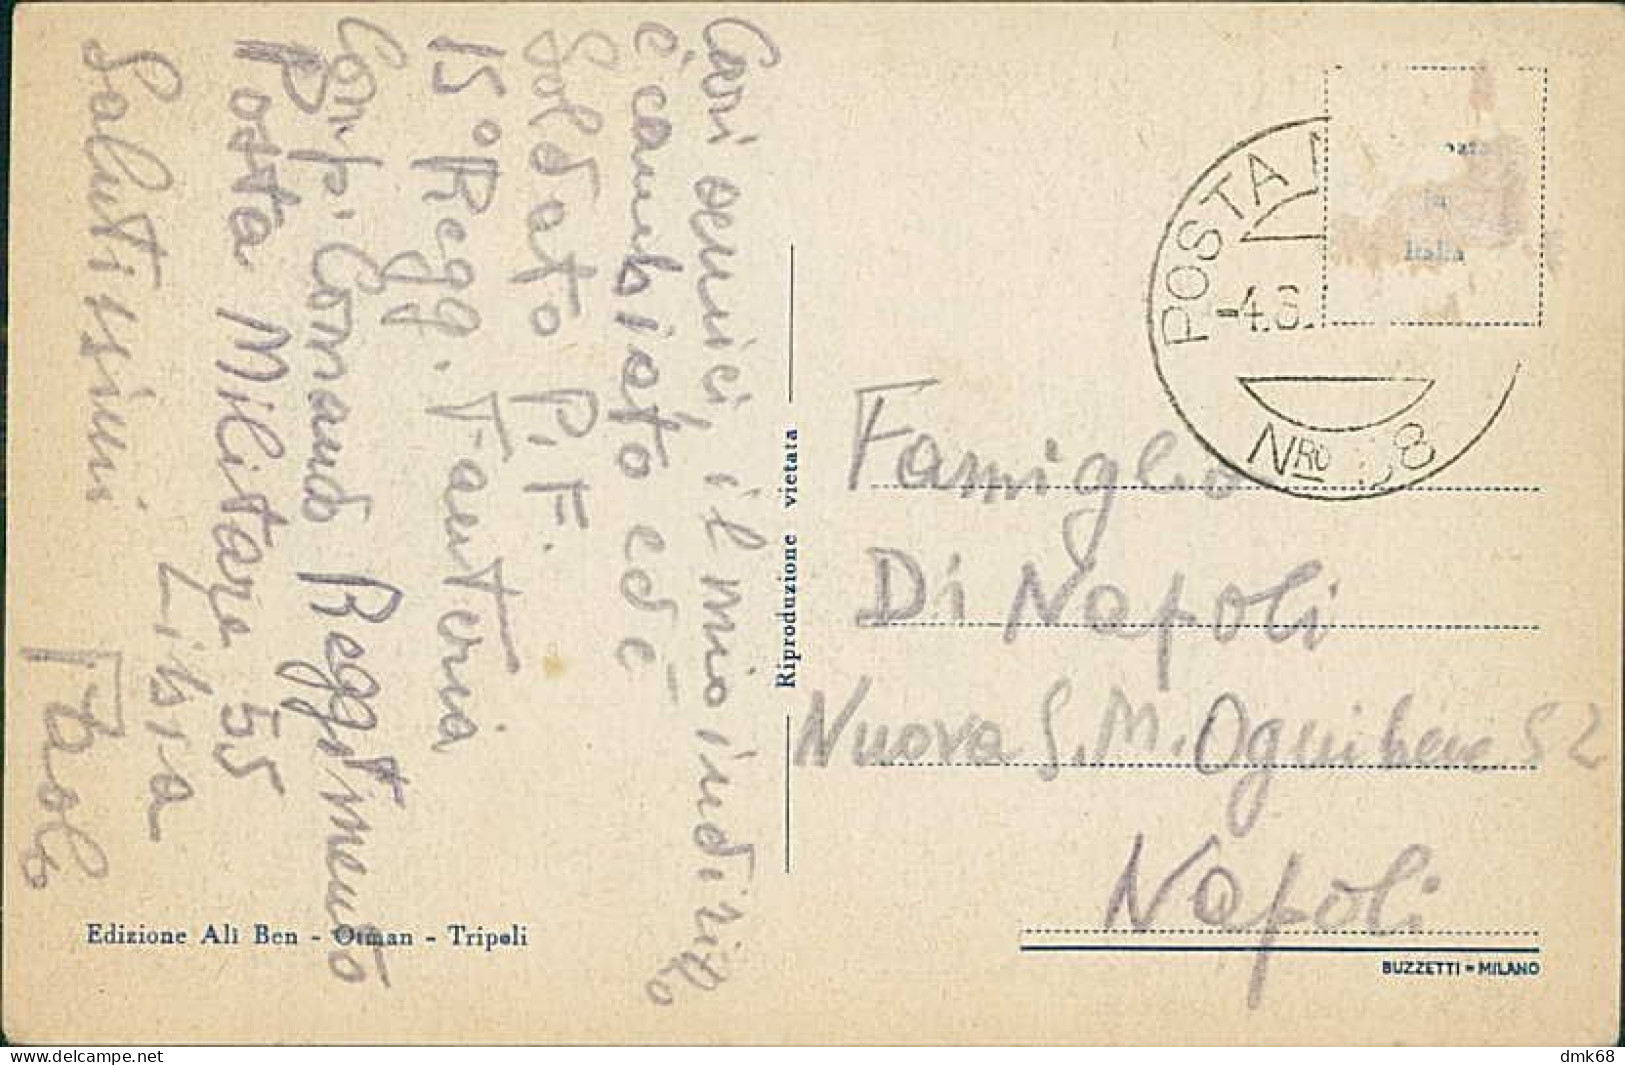 Cari amici, il mio indirizzo
è cambiato ed è
Soldato P.F.
15° Regg. Fanteria
Comp. Comando Reggimento
Posta Militare 55
Libia
Salutissimi
Paolo
Riproduzione vietata
POSTA
-4.8.
NRO 8
Famiglia
Di Napoli
Nuova S. M. Ognibene 52
Napoli
Edizione Alì Ben - Otman - Tripoli
BUZZETTI - MILANO
delcampe.net
dmk68